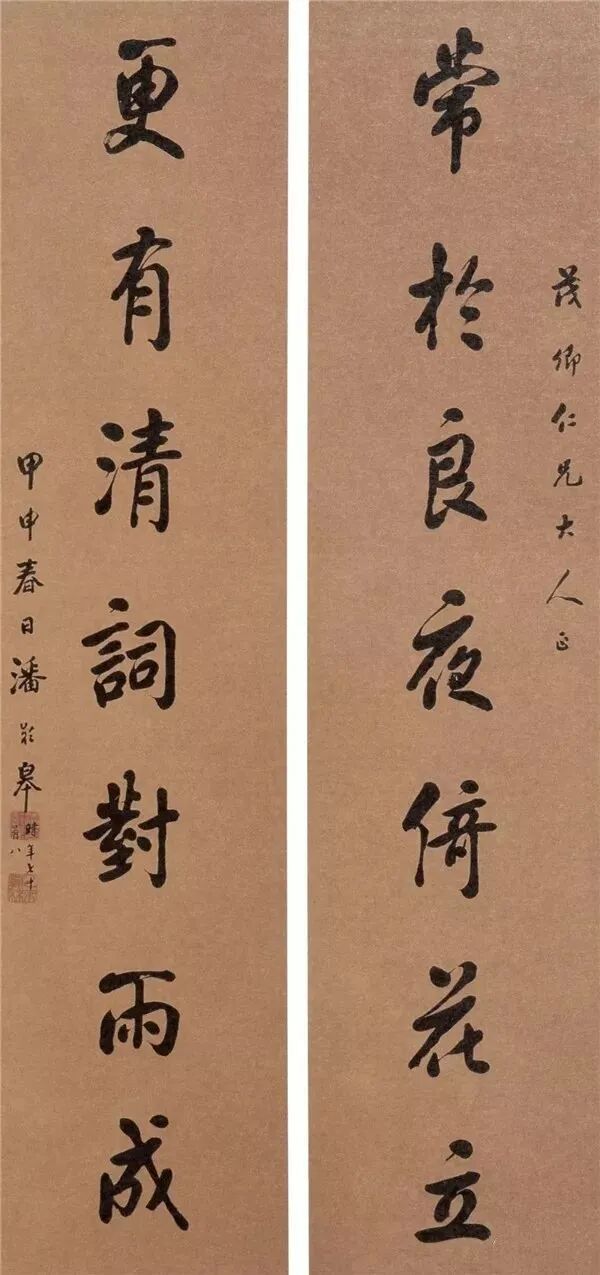 茂卿仁兄大人正
常於良夜倚花立
更有清詞對雨成
甲申春日潘齡皋
時年七十有八